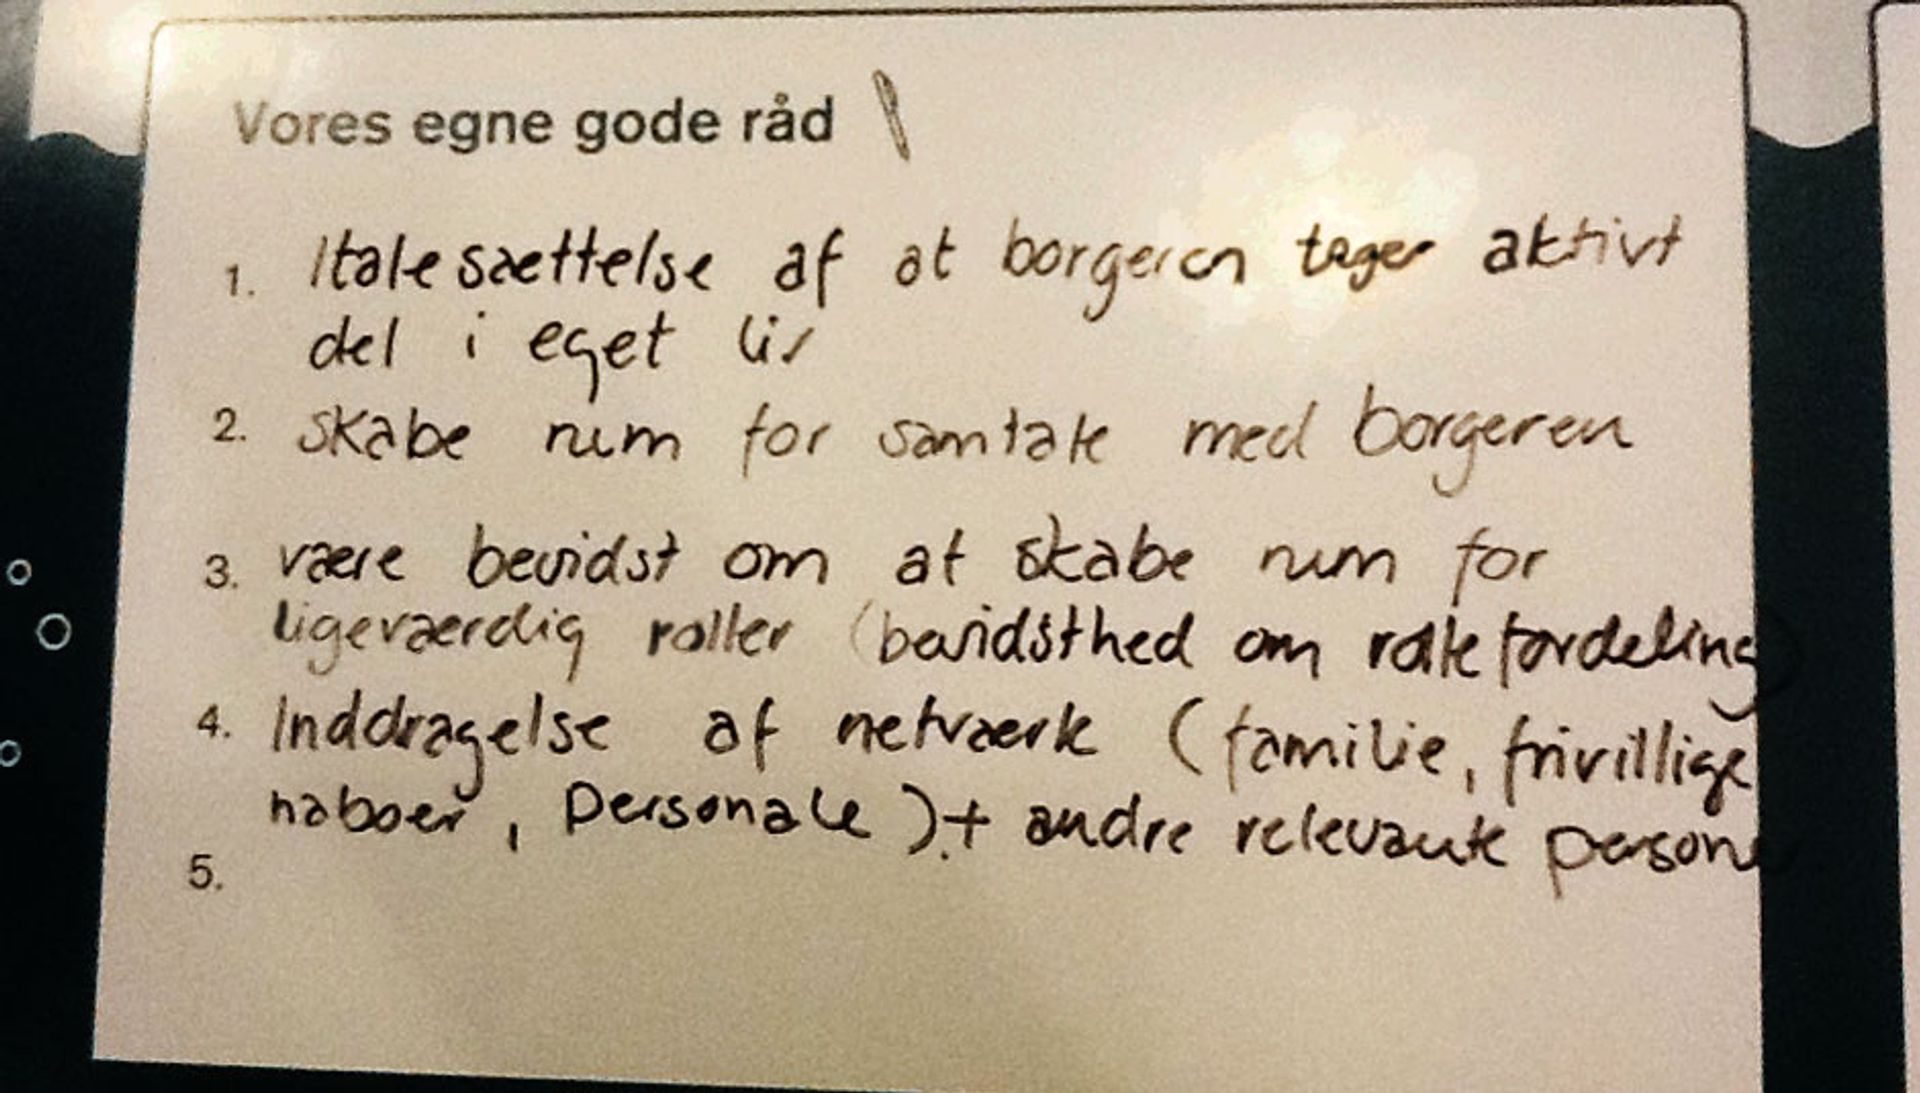 Vores egne gode råd
1. Italesættelse af at borgeren tager aktivt
del i eget liv
2. skabe rum for samtale med borgeren
3. være bevidst om at skabe rum for
ligeværdig roller (bevidsthed om rollefordeling
4. Inddragelse af netværk (familie, frivillige
naboer, Personale) + andre relevante person
5.